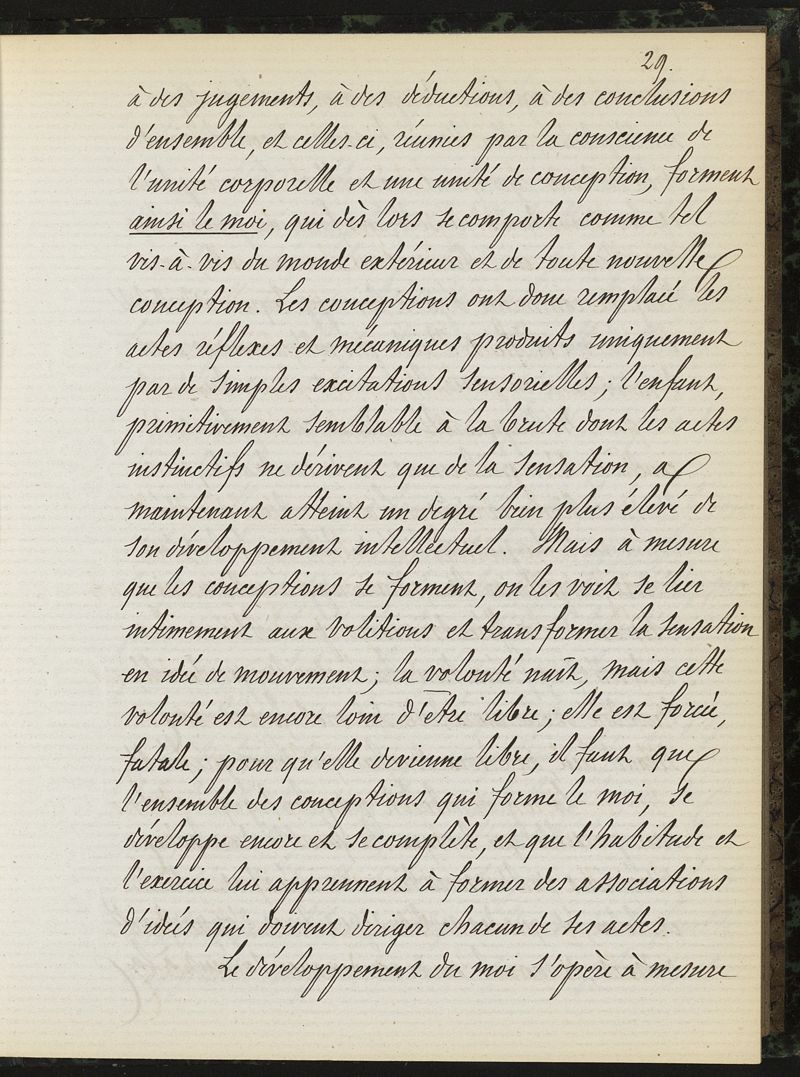 29.
à des jugements, à des déductions, à des conclusions
d'ensemble, et celles-ci, réunies par la conscience de
l'unité corporelle et une unité de conception, forment
ainsi le moi, qui dès lors se comporte comme tel
vis-à-vis du monde extérieur et de toute nouvelle
conception. Les conceptions ont donc remplacé les
actes réflexes et mécaniques produits uniquement
par de simples excitations sensorielles; l'enfant,
primitivement semblable à la brute dont les actes
instinctifs ne dérivent que de la sensation, a
maintenant atteint un degré bien plus élevé de
son développement intellectuel. Mais à mesure
que les conceptions se forment, on les voit se lier
intimement aux volitions et transformer la sensation
en idée de mouvement; la volonté naît, mais cette
volonté est encore loin d'être libre; elle est forcée,
fatale; pour qu'elle devienne libre, il faut que
l'ensemble des conceptions qui forme le moi, se
développe encore et se complète, et que l'habitude et
l'exercice lui apprennent à former des associations
d'idées qui doivent diriger chacun de ses actes.
Le développement du moi s'opère à mesure